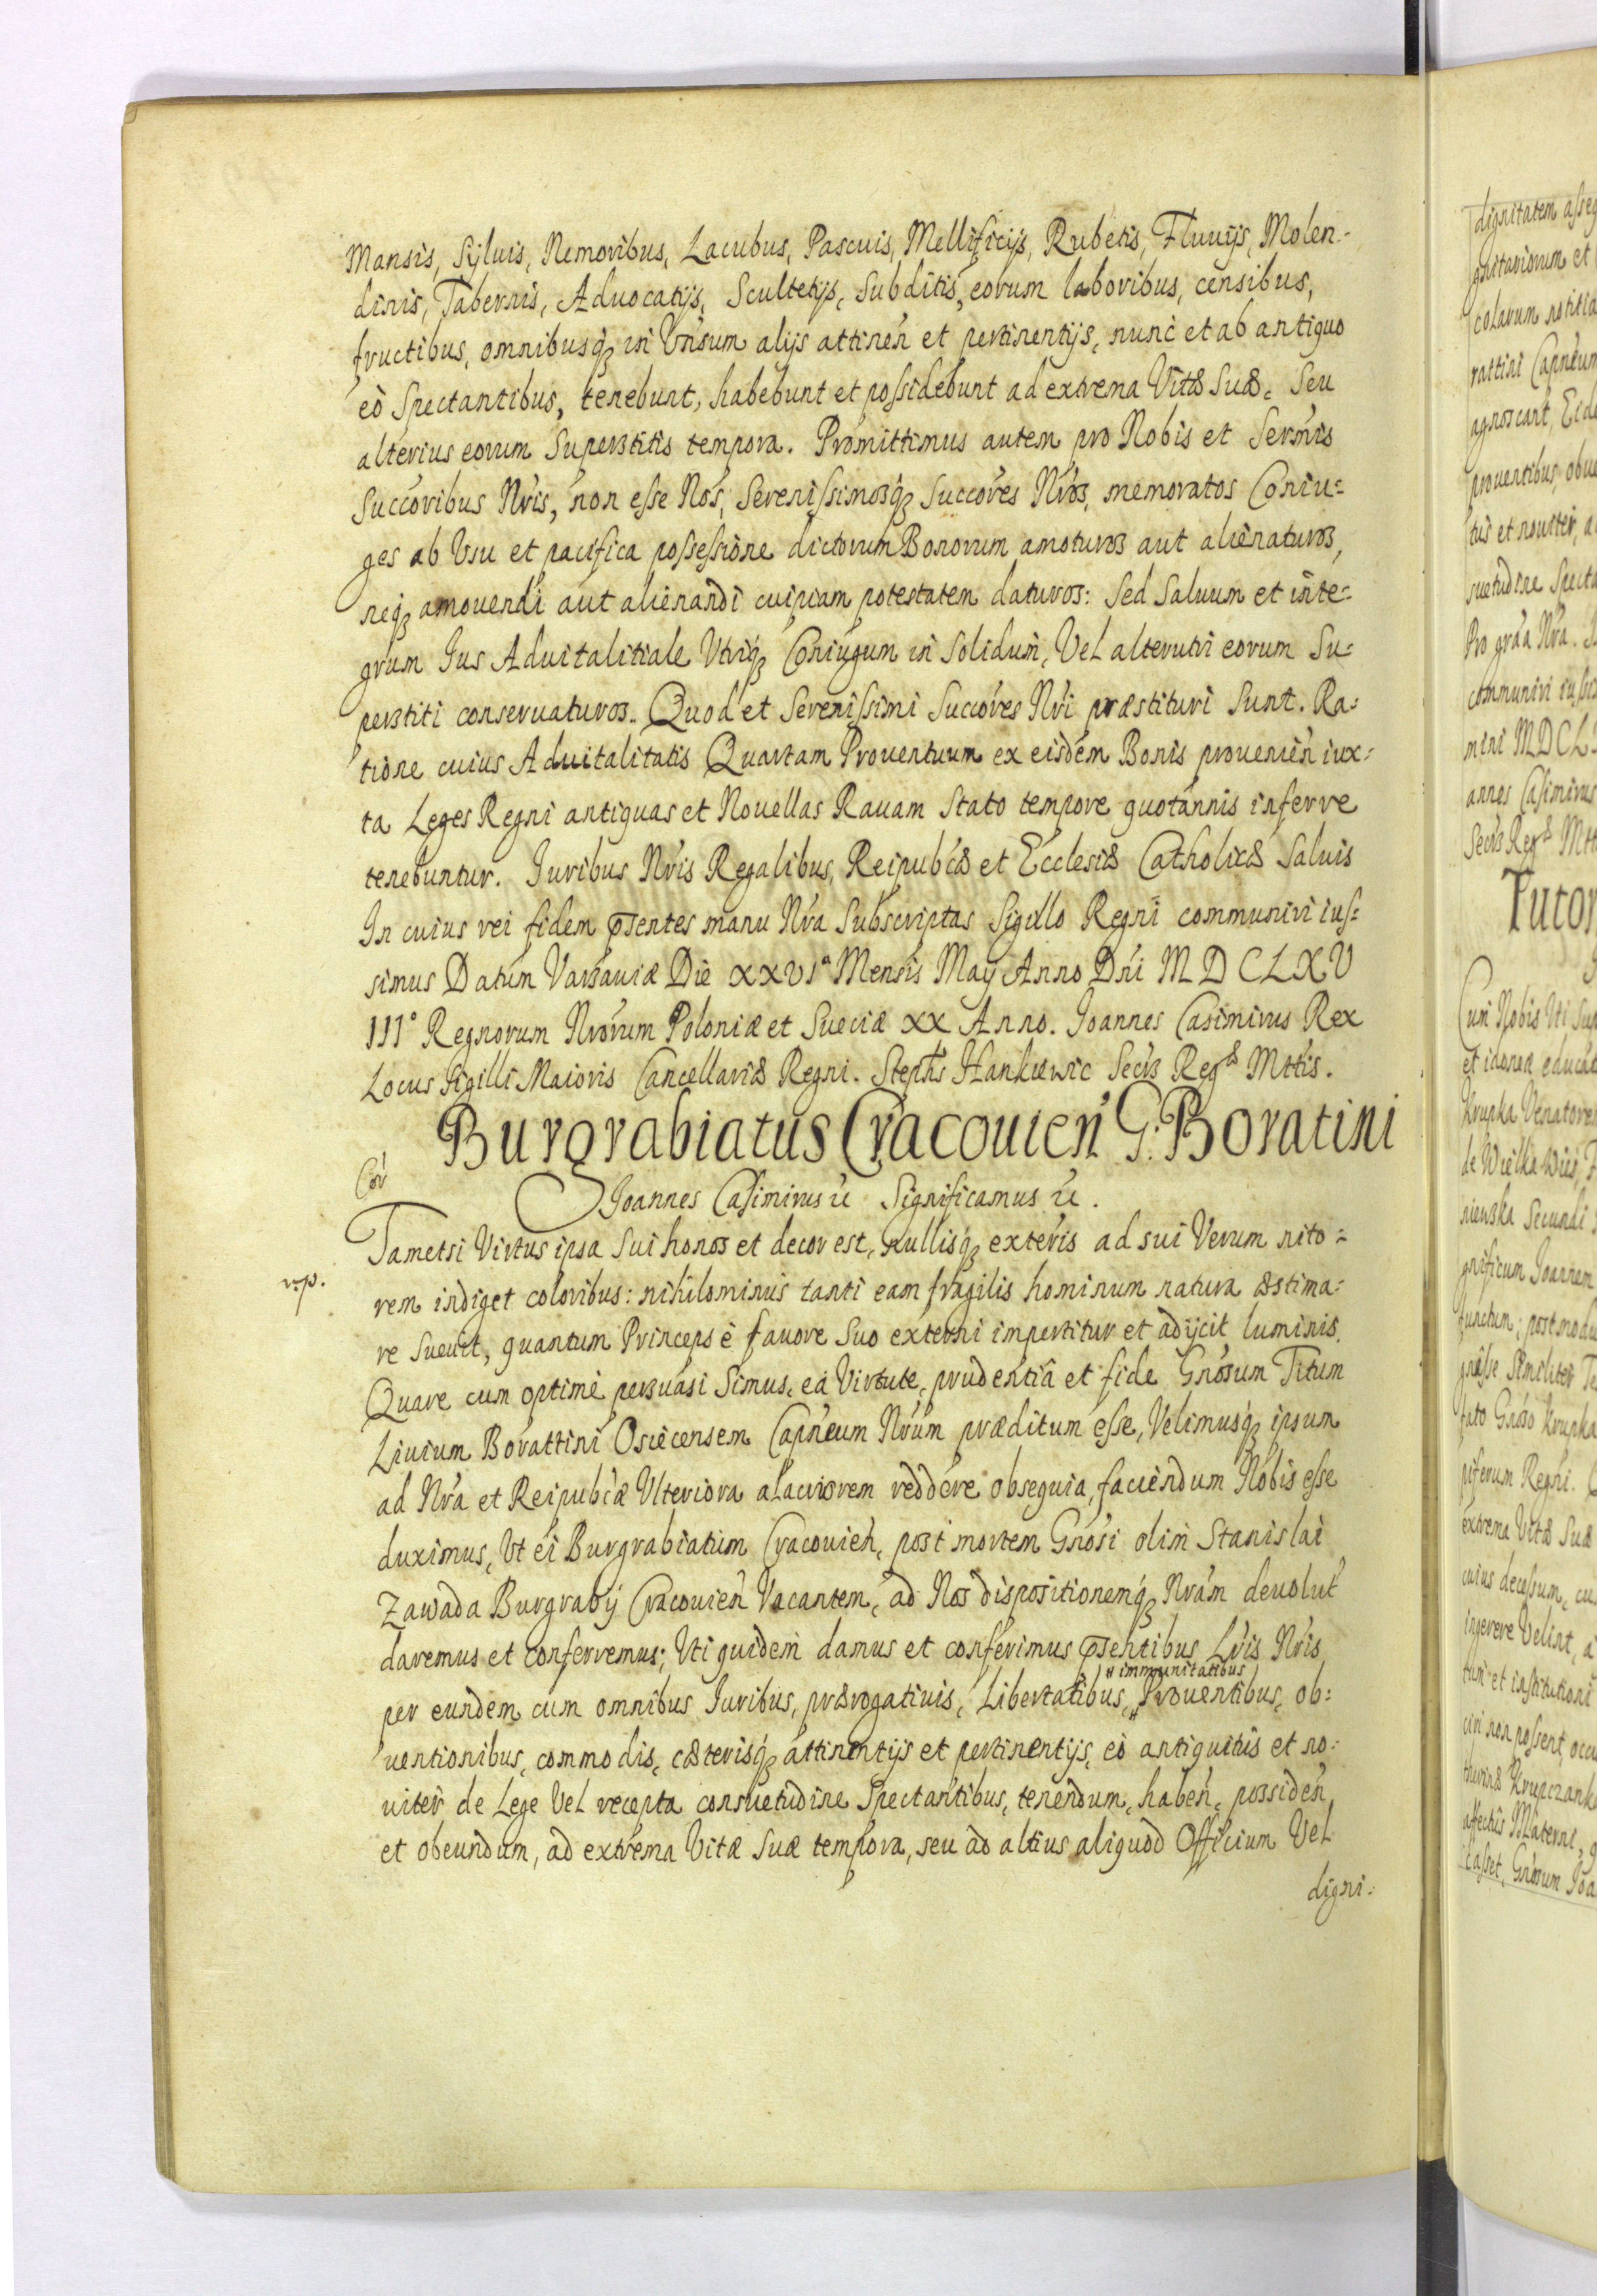 Mansis, Syluis, Nemoribus, Lacubus, Pascuis, Mellificijs, Rubetis, Fluuijs, Molen-
dinis, Tabernis, Aduocatijs, Scultetijs, Subditis, eorum laboribus, censibus,
fructibus, omnibusq3 in Vnsum alijs attinen̄ et pertinentijs, nunc et ab antiquo
eò Spectantibus, tenebunt, habebunt et possidebunt ad extrema Vitæ Suæ. Seu
alterius eorum Superstitis tempora. Promittimus autem pro Nobis et Sermis
Succoribus Nris, non esse Nos, Serenissimosq3 Succores Nros, memoratos Coniu=
ges ab Vsu et pacifica possessione dictorum Bonorum amoturos aut alienaturos,
neq3 amouendi aut alienandi cuipiam potestatem daturos: Sed Saluum et inte=
grum Ius Aduitalitiale Vtriq3 Coniugum in Solidum, Vel alterutri eorum Su=
perstiti conseruaturos. Quod et Serenissimi Succores Nri præstituri Sunt. Ra=
tione cuius Aduitalitatis Quartam Prouentuum ex eisdem Bonis prouenien̄ iux=
ta Leges Regni antiquas et Nouellas Rauam Stato tempore quotannis inferre
tenebuntur. Iuribus Nris Regalibus, Reipubcæ et Ecclesiæ Catholicæ Saluis
In cuius rei fidem p̄sentes manu Nra Subscriptas Sigillo Regni communiri ius=
simus Datum Varsauiæ Die XXVIa Mensis Maij Anno Dni MDCLXV
IIIº Regnorum Nrorum Poloniæ et Sueciæ XX Anno. Joannes Casimirus Rex
Locus Sigilli Maioris Cancellariæ Regni. Stephs Hankiewic Secrs Regæ Mttis.
Burgrabiatus Cracouien̄ G. Boratini
Cor
Joannes Casimirus &c Significamus &c.
Tametsi Virtus ipsa Sui honos et decor est, nullisq3 exteris ad sui Verum nito=
rp.
rem indiget coloribus: nihilominus tanti eam fragilis hominum natura æstima=
re sueuit, quantum Princeps è fauore Suo externi impertitur et adijcit luminis.
Quare cum optimè persuasi Simus, eâ Virtute, prudentiâ et fide Gnosum Titum
Liuium Borattini Osiecensem Capneum Nrum præditum esse, Velimusq3 ipsum
ad Nra et Reipubcæ Vlteriora alacriorem reddere obsequia, faciendum Nobis esse
duximus, Vt ei Burgrabiatum Cracouien̄, post mortem Gnosi olim Stanislai
Zawada Burgrabij Cracouien̄ Vacantem, ad Nos dispositionemq3 Nram deuolut̄
daremus et conferremus; Vti quidem damus et conferimus p̄sentibus Lris Nris,
immunitatibus
per eundem cum omnibus Iuribus, prærogatiuis, Libertatibus, Prouentibus, ob=
uentionibus, commodis, cæterisq3 attinentijs et pertinentijs, eò antiquitus et no=
uiter de Lege Vel recepta consuetudine Spectantibus, tenendum, haben̄, possiden̄,
et obeundum, ad extrema Vitæ Suæ tempora, seu ad altius aliquod Officium Vel
digni=
dignitatem asseq
gnitariorum et
colarum notitia
rattini Capneum
agnoscant
prouentibus, obue
tus et nouiter, a
suetudine Specta
Pro graa Nra.
communiri iussi
mini MDCL
annes Casimirus
Secrs Regæ Mtt
Tutor
Cum Nobis Vti Sup
et idonea educat
Krupka Venatore
de Wielka Wies
niewska Secundi
gnificum Joannem
functum; postmodu
gnesse Similiter Te
fato Gnoso Krupka
piferum Regni.
extrema Vitæ Suæ
cuius decessum, cu
ingerere Velint, a
tum et institutioni
ciri non possent, occu
thurinæ Krupczank
affectus Materni, q
casset, Gnosum Joa